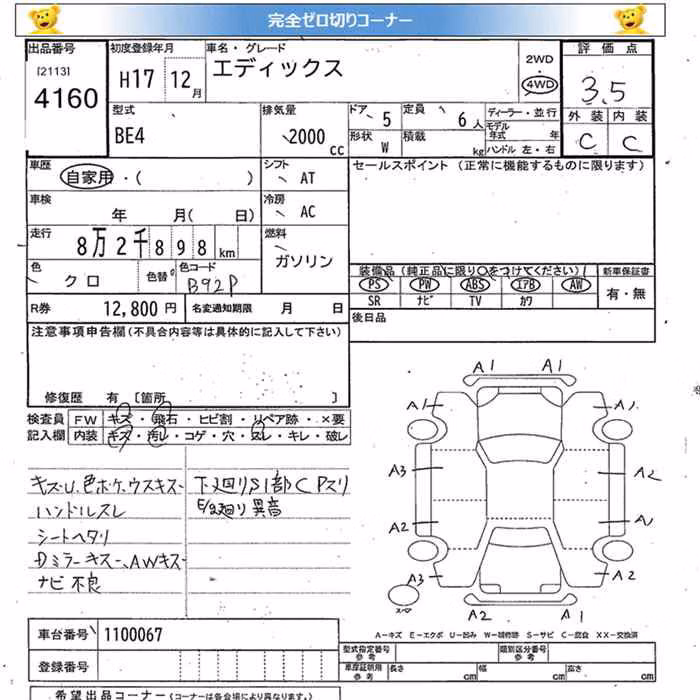 完全ゼロ切りコーナー
出品番号
[2113]
4160
初度登録年月
H17 12月
車名・グレード
エディックス
2WD
・
4WD
評価点
3.5
外装 内装
C C
型式
BE4
排気量
2000
cc
ドア 5
定員 6人
ディーラー・並行
モデル年式 年
形状 W
積載 kg
ハンドル 左・右
車歴
自家用・( )
シフト
AT
セールスポイント (正常に機能するものに限ります)
車検
年 月( 日)
冷房
AC
走行
8万2千898km
燃料
ガソリン
色
クロ
色替
色コード
B92P
装備品(純正品に限り○をつけてください)
新車保証書
PS PW ABS エアB AW
SR ナビ TV カワ
有・無
R券 12,800円
名変通知期限 月 日
後日品
注意事項申告欄(不具合内容等は具体的に記入して下さい)
修復歴 有 [箇所 ]
検査員
記入欄
FW キズ・飛石・ヒビ割・リペア跡・×要
内装 キズ・汚レ・コゲ・穴・スレ・キレ・破レ
キズU,色ボケ,ウスキズ
ハンドルスレ
シートヘタリ
Dミラーキズー、AWキズー
ナビ 不良
下廻りS1部CPスリ
E/g廻り異音
A1 A1
A1 A1
A3 A2
A2
A3 A2
A2 A1
スペア
A-キズ E-エクボ U-凹み W-補修跡 S-サビ C-腐食 XX-交換済
車台番号 1100067
登録番号
型式指定番号
参考
類別区分番号
参考
車庫証明用
参考
長さ cm 幅 cm 高さ cm
希望出品コーナー(コーナーは各会場により異なります。)